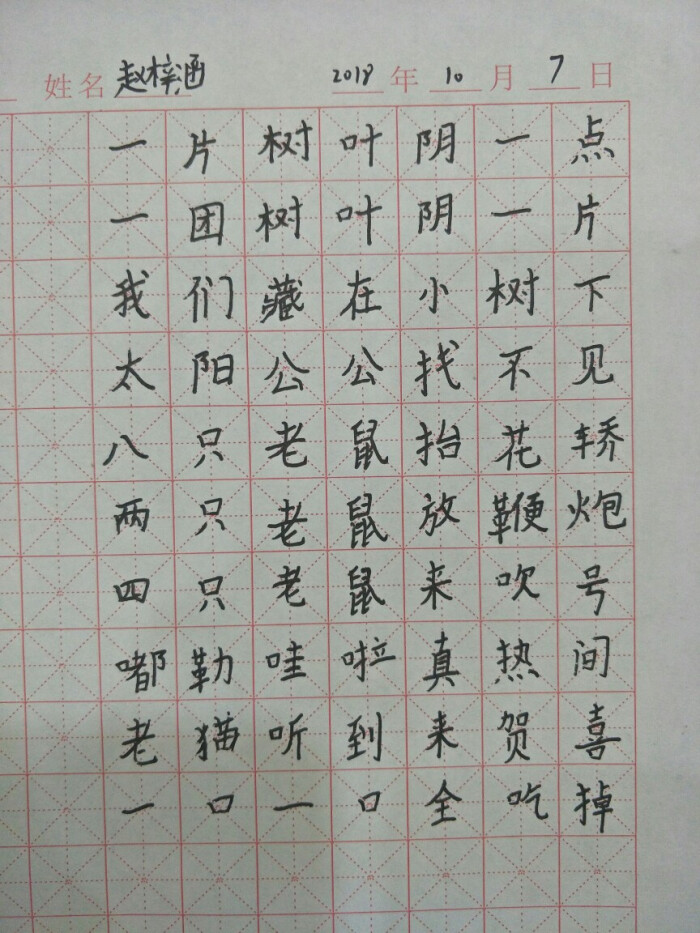 姓名 赵梓涵 2018 年 10 月 7 日
一片树叶阴一点
一团树叶阴一片
我们藏在小树下
太阳公公找不见
八只老鼠抬花轿
两只老鼠放鞭炮
四只老鼠来吹号
嘟勒哇啦真热间
老猫听到来贺喜
一口一口全吃掉